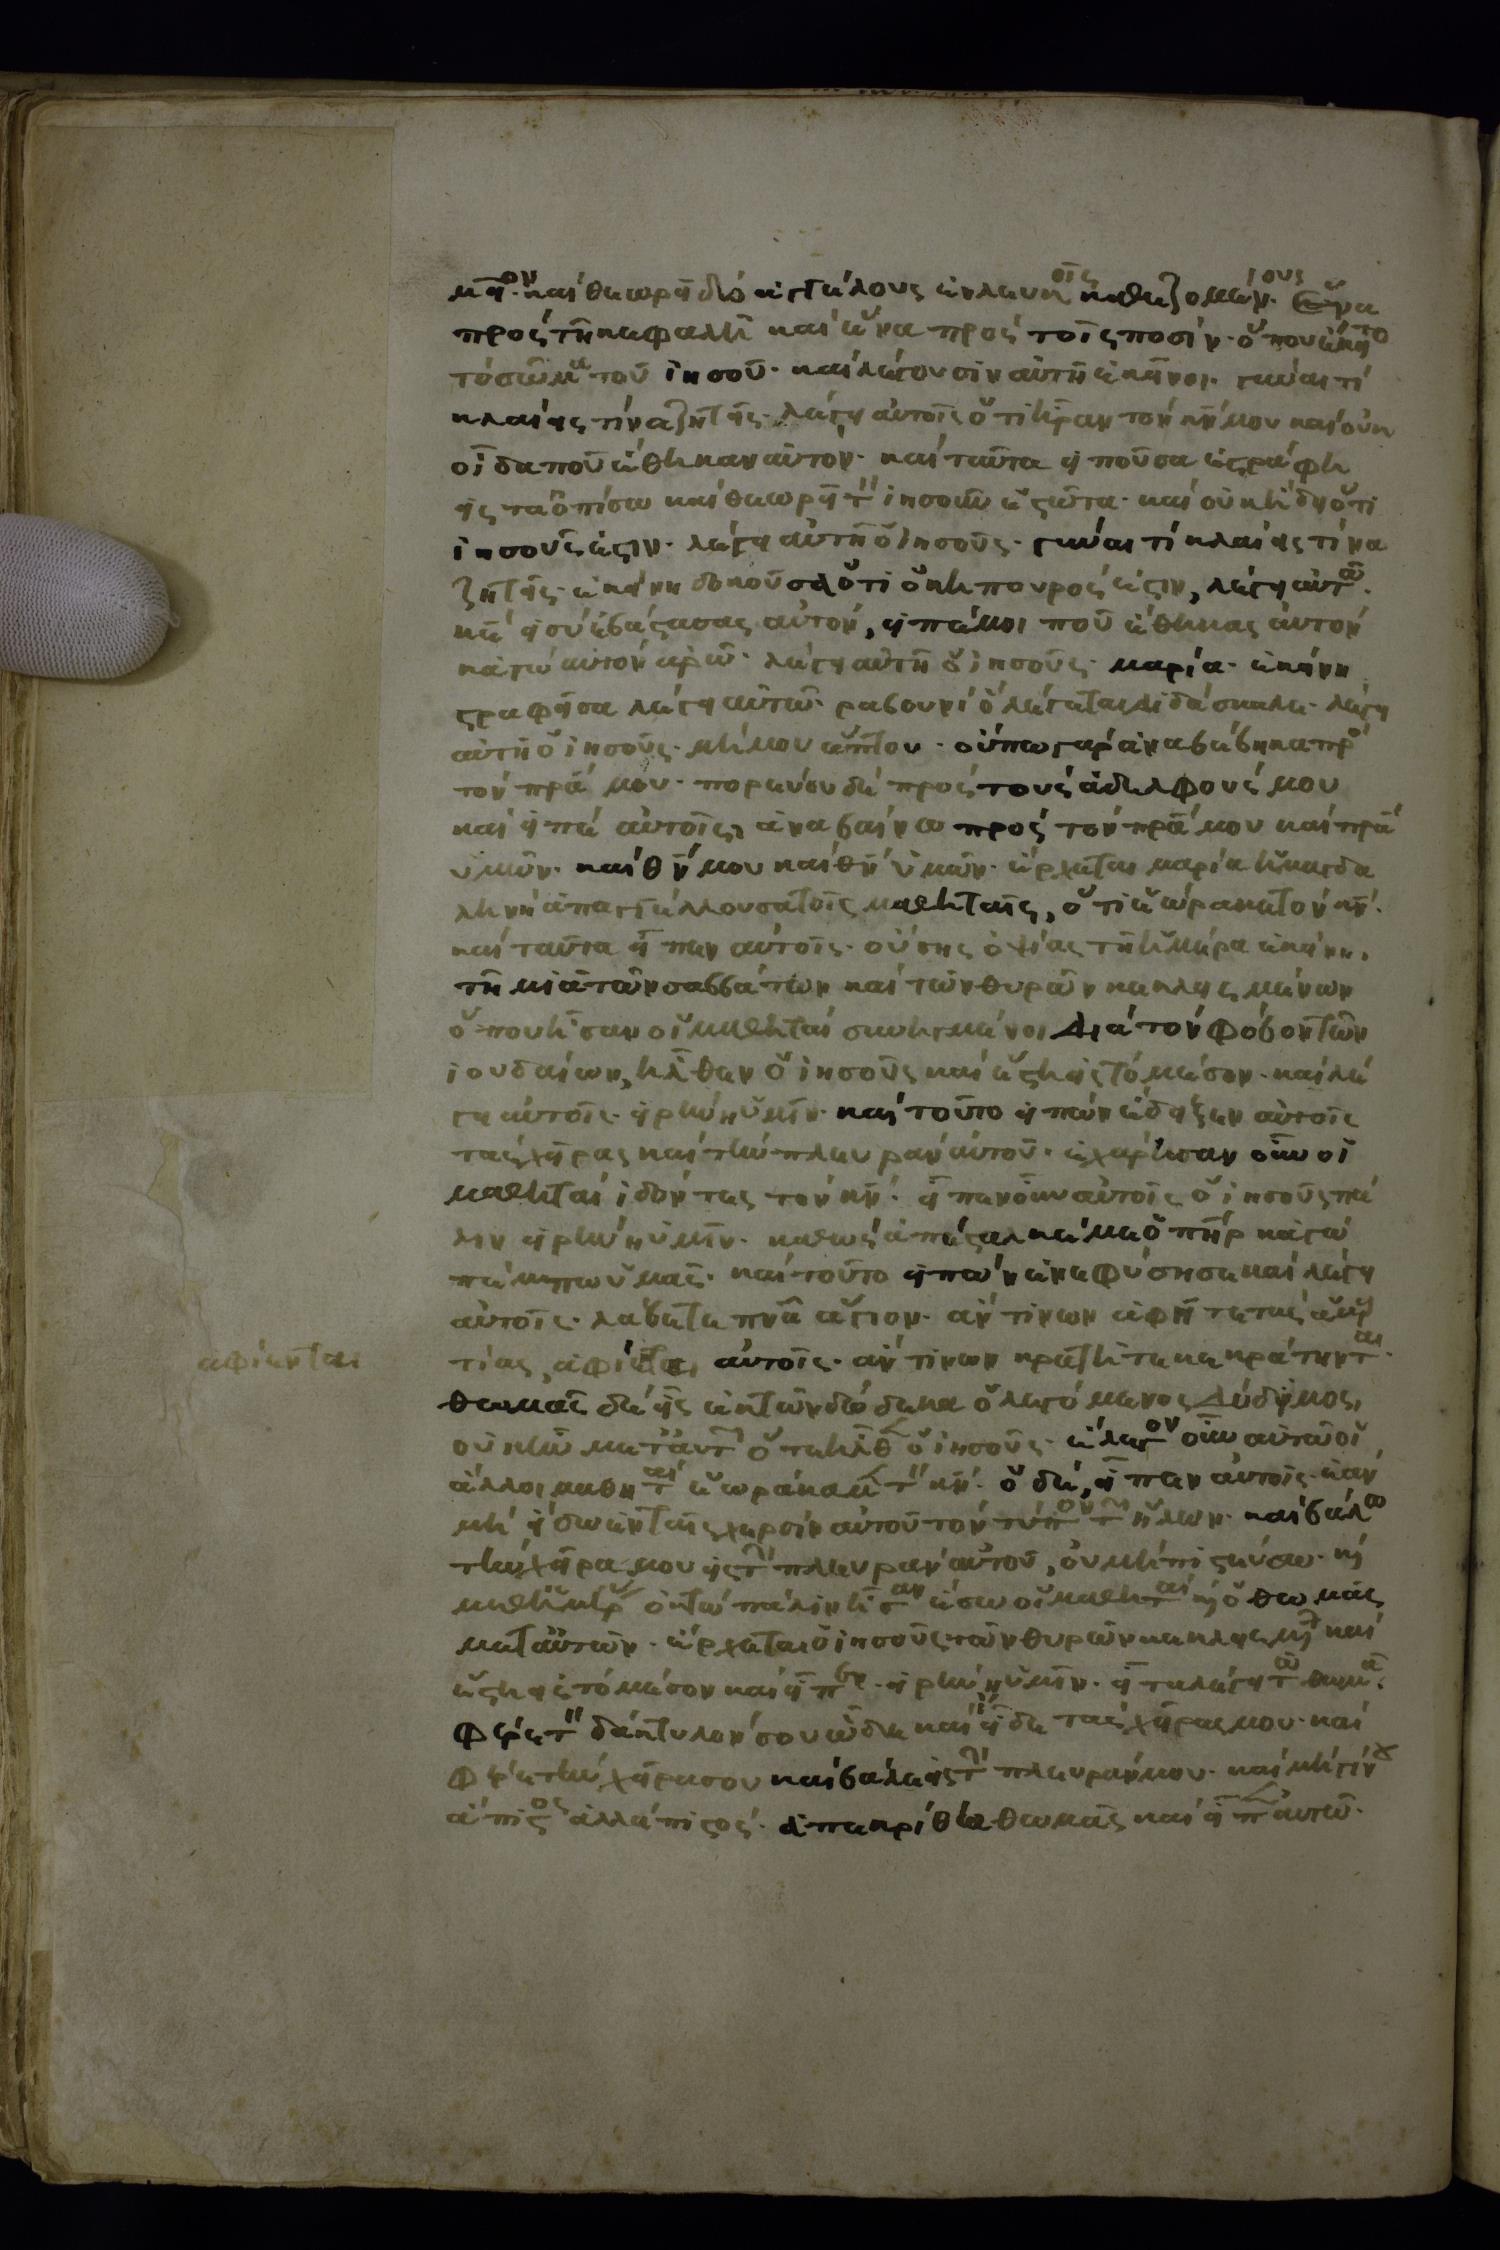 μεῖον· καὶ θεωρεῖ δύο ἀγγέλους ἐν λευκοῖς καθεζομένους· ἕνα
πρὸς τῆ κεφαλῆ καὶ ἕνα πρὸς τοῖς ποσίν· ὅπου ἔκειτο
τὸ σῶμα τοῦ ἰησοῦ· καὶ λέγουσιν αὐτῆ ἐκεῖνοι· γύναι τί
κλαίεις τίνα ζητεῖς· λέγει αὐτοῖς ὅτι ἦραν τὸν κν μου καὶ οὐκ
οἶδα ποῦ ἔθηκαν αὐτόν· καὶ ταῦτα εἰποῦσα ἐστράφη
εἰς τὰ ὀπίσω καὶ θεωρεῖ τὸν ἰησοῦν ἑστῶτα· καὶ οὐκ ἤδει ὅτι
ἰησοῦς ἐστιν· λέγει αὐτῆ ὁ ἰησοῦς· γύναι τί κλαίεις τίνα
ζητεῖς· ἐκείνη δοκοῦσα ὅτι ὁ κηπουρός ἐστιν, λέγει αὐτῶ·
κε εἰ σὺ ἐβάστασας αὐτόν, εἰπέ μοι ποῦ ἔθηκας αὐτὸν
κἀγὼ αὐτὸν ἀρῶ· λέγει αὐτῆ ὁ ἰησοῦς· μαρία· ἐκείνη
στραφεῖσα λέγει αὐτῶ· ραβουνί ὃ λέγεται διδάσκαλε· λέγει
αὐτῆ ὁ ἰησοῦς· μή μου ἅπτου· οὔπω γὰρ ἀναβέβηκα πρὸς
τὸν πρα μου· πορεύου δὲ πρὸς τοὺς ἀδελφούς μου
καὶ εἰπὲ αὐτοῖς, ἀναβαίνω πρὸς τὸν πρα μου καὶ πρα
ὑμῶν· καὶ θν μου καὶ θν ὑμῶν· ἔρχεται μαρία ἡ μαγδα
ληνὴ ἀπαγγέλλουσα τοῖς μαθηταῖς, ὅτι ἑώρακε τὸν κν·
καὶ ταῦτα εἶπεν αὐτοῖς· οὔσης ὀψίας τῆ ἡμέρα ἐκείνη,
τῆ μιᾶ τῶν σαββάτων καὶ τῶν θυρῶν κεκλεισμένων
ὅπου ἦσαν οἱ μαθηταὶ συνηγμένοι διὰ τὸν φόβον τῶν
ἰουδαίων, ἦλθεν ὁ ἰησοῦς καὶ ἔστη εἰς τὸ μέσον· καὶ λέ
γει αὐτοῖς· εἰρήνη ὑμῖν· καὶ τοῦτο εἰπὼν ἔδειξεν αὐτοῖς
τὰς χεῖρας καὶ τὴν πλευρὰν αὐτοῦ· ἐχάρησαν οὖν οἱ
μαθηταὶ ἰδόντες τὸν κν· εἶπεν οὖν αὐτοῖς ὁ ἰησοῦς πά
λιν εἰρήνη ὑμῖν· καθὼς ἀπέσταλκέ με ὁ πηρ κἀγὼ
πέμπω ὑμᾶς· καὶ τοῦτο εἰπὼν ἐνεφύσησε καὶ λέγει
αὐτοῖς· λάβετε πνα ἅγιον· ἄν τινων ἀφῆτε τὰς ἁμαρ
τίας, ἀφίεται αὐτοῖς· ἄν τινων κρατῆτε κεκράτηνται·
ἀφίενται
θωμᾶς δὲ εἷς ἐκ τῶν δώδεκα ὁ λεγόμενος δίδυμος,
οὐκ ἦν μετ' αὐτῶν ὅτε ἦλθεν ὁ ἰησοῦς· ἔλεγον οὖν αὐτῶ οἱ
ἄλλοι μαθηταὶ ἑωράκαμεν τὸν κν· ὁ δὲ, εἶπεν αὐτοῖς· ἐὰν
μὴ εἴδω ἐν ταῖς χερσὶν αὐτοῦ τὸν τύπον τῶν ἥλων· καὶ βάλω
τὴν χεῖρα μου εἰς τὴν πλευρὰν αὐτοῦ, οὐ μὴ πιστεύσω· καὶ
μεθ' ἡμέρας ὀκτὼ πάλιν ἦσαν ἔσω οἱ μαθηταὶ καὶ ὁ θωμᾶς
μετ' αὐτῶν· ἔρχεται ὁ ἰησοῦς τῶν θυρῶν κεκλεισμένων καὶ
ἔστη εἰς τὸ μέσον καὶ εἶπεν· εἰρήνη ὑμῖν· εἶτα λέγει τῶ θωμᾶ·
φέρε τὸν δάκτυλόν σου ὧδε καὶ ἴδε τὰς χεῖρας μου· καὶ
φέρε τὴν χεῖρα σου καὶ βάλε εἰς τὴν πλευράν μου· καὶ μὴ γίνου
ἄπιστος ἀλλὰ πιστός· ἀπεκρίθη θωμᾶς καὶ εἶπεν αὐτῶ·